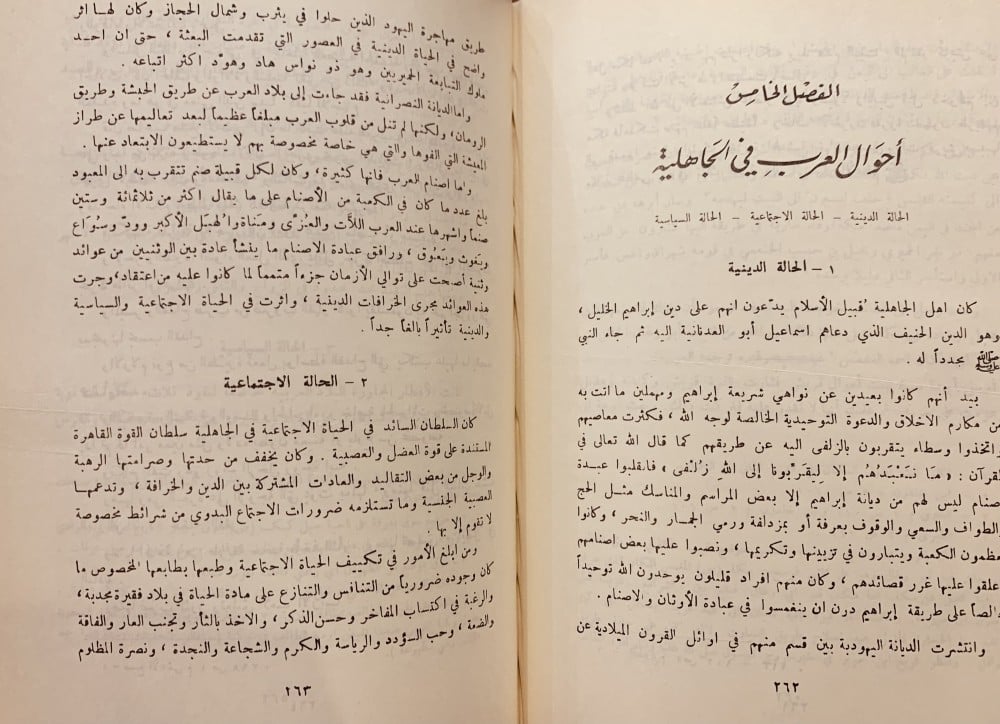 الفصل الخامس
أحوال العرب في الجاهلية
الحالة الدينية – الحالة الاجتماعية – الحالة السياسية
١ – الحالة الدينية
كان اهل الجاهلية قُبيل الأسلام يدّعون انهم على دين إبراهيم الخليل ،
وهو الدين الحنيف الذي دعاهم اسماعيل أبو العدنانية اليه ثم جاء النبي
ﷺ مجدداً له .
بيد أنهم كانوا بعيدين عن نواهي شريعة إبراهيم ومهملين ما اتت به
من مكارم الاخلاق والدعوة التوحيدية الخالصة لوجه الله ، فكثرت معاصيهم
واتخذوا وسطاء يتقربون بالزلفى اليه عن طريقهم كما قال الله تعالى في
القرآن : « مَا نَعْبُدُهُم إلا لِيقَرِّبونا إلى اللهِ زُلْفى » ، فانقلبوا عبدة
اصنام ليس لهم من ديانة إبراهيم إلا بعض المراسم والمناسك مثل الحج
والطواف والسعي والوقوف بعرفة أو بمزدلفة ورمي الجمار والنحر ، وكانوا
يعظمون الكعبة ويتبارون في تزيينها وتكريمها ، ونصبوا عليها بعض اصنامهم
وعلقوا عليها غرر قصائدهم ، وكان منهم افراد قليلون يوحدون الله توحيداً
خالصاً على طريقة إبراهيم درن ان ينغمسوا في عبادة الأوثان والاصنام .
وانتشرت الديانة اليهودية بين قسم منهم في اوائل القرون الميلادية عن
٢٦٢
طريق مهاجرة اليهود الذين حلوا في يثرب وشمال الحجاز وكان لهـا اثر
واضح في الحياة الدينية في العصور التي تقدمت البعثة ، حتى ان احـد
ملوك التبابعة الحميريين وهو ذو نواس هاد وهوّد اكثر اتباعه .
واما الديانة النصرانية فقد جاءت إلى بلاد العرب عن طريق الحبشة وطريق
الرومان، ولكنها لم تنل من قلوب العرب مبلغاً عظيماً لبعد تعاليمها عن طراز
المعيشة التي الفوها والتي هي خاصة مخصوصة بهم لا يستطيعون الابتعاد عنها .
واما اصنام العرب فانها كثيرة ، وكان لكل قبيلة صنم تتقرب به الى المعبود
بلغ عدد ما كان في الكعبة من الأصنام على ما يقال اكثر من ثلاثمائة وستين
صنماً واشهرها عند العرب اللاَّت والعُزَّى ومَناةوا ُلهبَل الأكبر وودّ وسُوَاع
ويَغوث ويَعُوق ، ورافق عبادة الاصنام ما ينشأ عادة بين الوثنيين من عوائد
وثنية أصبحت على توالي الأزمان جزءاً متمماً لما كانوا عليه من اعتقاد، وجرت
هذه العوائد مجرى الخرافات الدينية ، واثرت في الحياة الاجتماعية والسياسية
والدينية تأثيراً بالغاً جداً .
٢ – الحالة الاجتماعية
كان السلطان السائد في الحياة الاجتماعية في الجاهلية سلطان القوة القاهرة
المستندة على قوة العضل والعصبية . وكان يخفف من حدتها وصرامتها الرهبة
والوجل من بعض التقاليد والعادات المشتركة بين الدين والخرافة ، وتدعمهـا
العصبية الجنسية وما تستلزمه ضرورات الاجتماع البدوي من شرائط مخصوصة
لا تقوم إلا بها .
ومن ابلغ الأمور في تكييف الحياة الاجتماعية وطبعها بطابعها المخصوص ما
كان وجوده ضرورياً من التنافس والتنازع على مادة الحياة في بلاد فقيرة مجدبة ،
والرغبة في اكتساب المفاخر وحسن الذكر ، والاخذ بالثأر وتجنب العار والفاقة
والضعة ، وحب السؤدد والرياسة والكرم والشجاعة والنجدة ، ونصرة المظلوم
٢٦٣